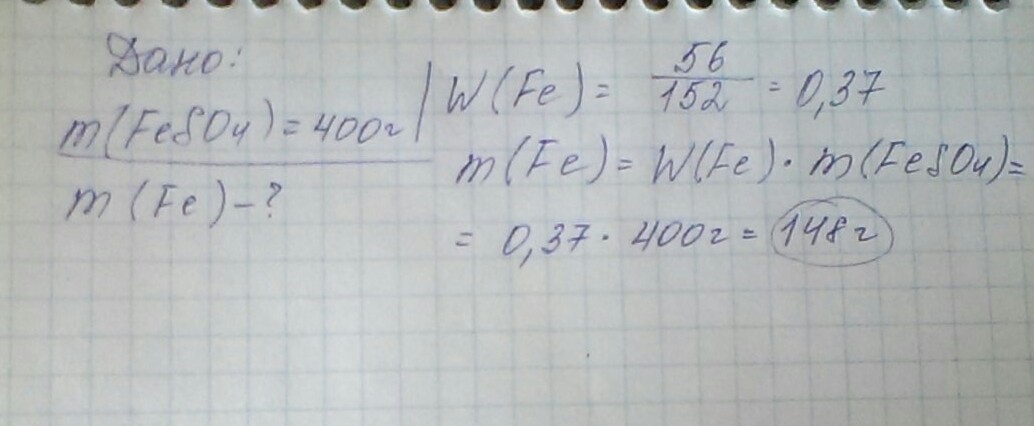 Дано:
m(FeSO4)=400г
m(Fe)-?
W(Fe)= 56/152 = 0,37
m(Fe)= W(Fe)· m(FeSO4)=
= 0,37· 400г= 148г